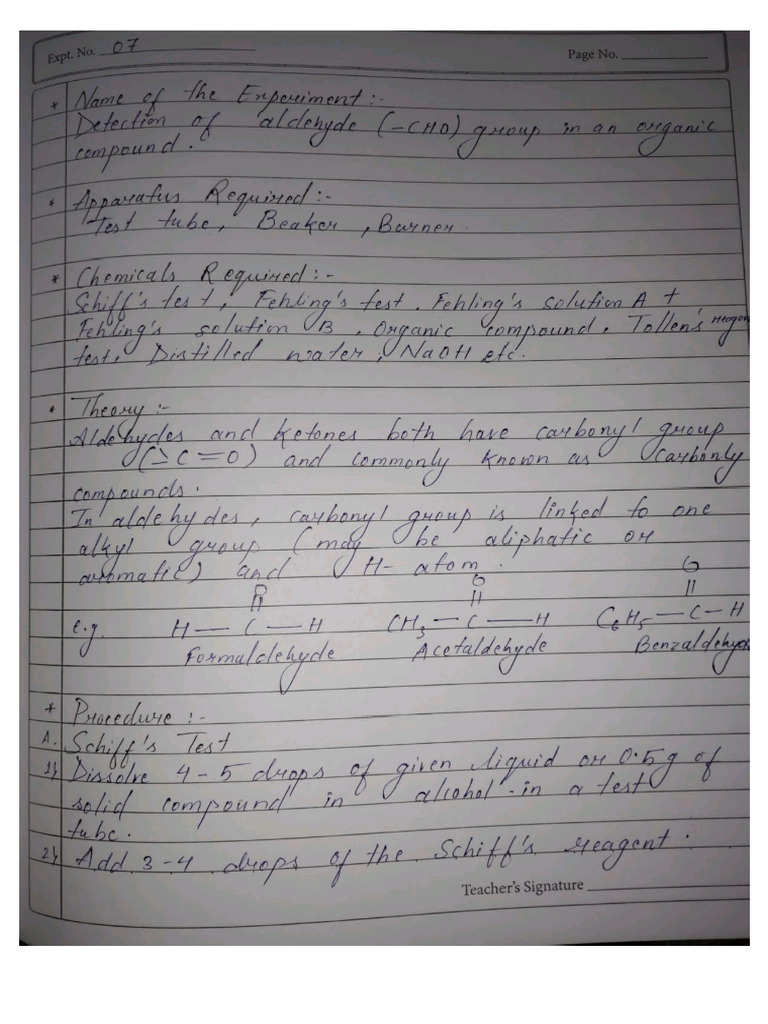 Expt. No. 07
Page No.
* Name of the Experiment :-
Detection of aldehyde (-CHO) group in an organic
compound.
* Apparatus Required :-
Test tube, Beaker, Burner.
* Chemicals Required :-
Schiff's test, Fehling's test. Fehling's solution A +
Fehling's solution B. Organic compound. Tollen's reagen
test. Distilled water, NaOH etc.
* Theory :-
Aldehydes and ketones both have carbonyl group
(>C=O) and commonly known as carbonly
compounds.
In aldehydes, carbonyl group is linked to one
alkyl group (may be aliphatic or
aromatic) and H- atom.
O O O
|| || ||
e.g. H — C — H CH3 — C — H C6H5 — C — H
Formaldehyde Acetaldehyde Benzaldehyde
* Procedure :-
A. Schiff's Test
1) Dissolve 4-5 drops of given liquid or 0.5g of
solid compound in alcohol in a test
tube.
2) Add 3-4 drops of the Schiff's reagent.
Teacher's Signature